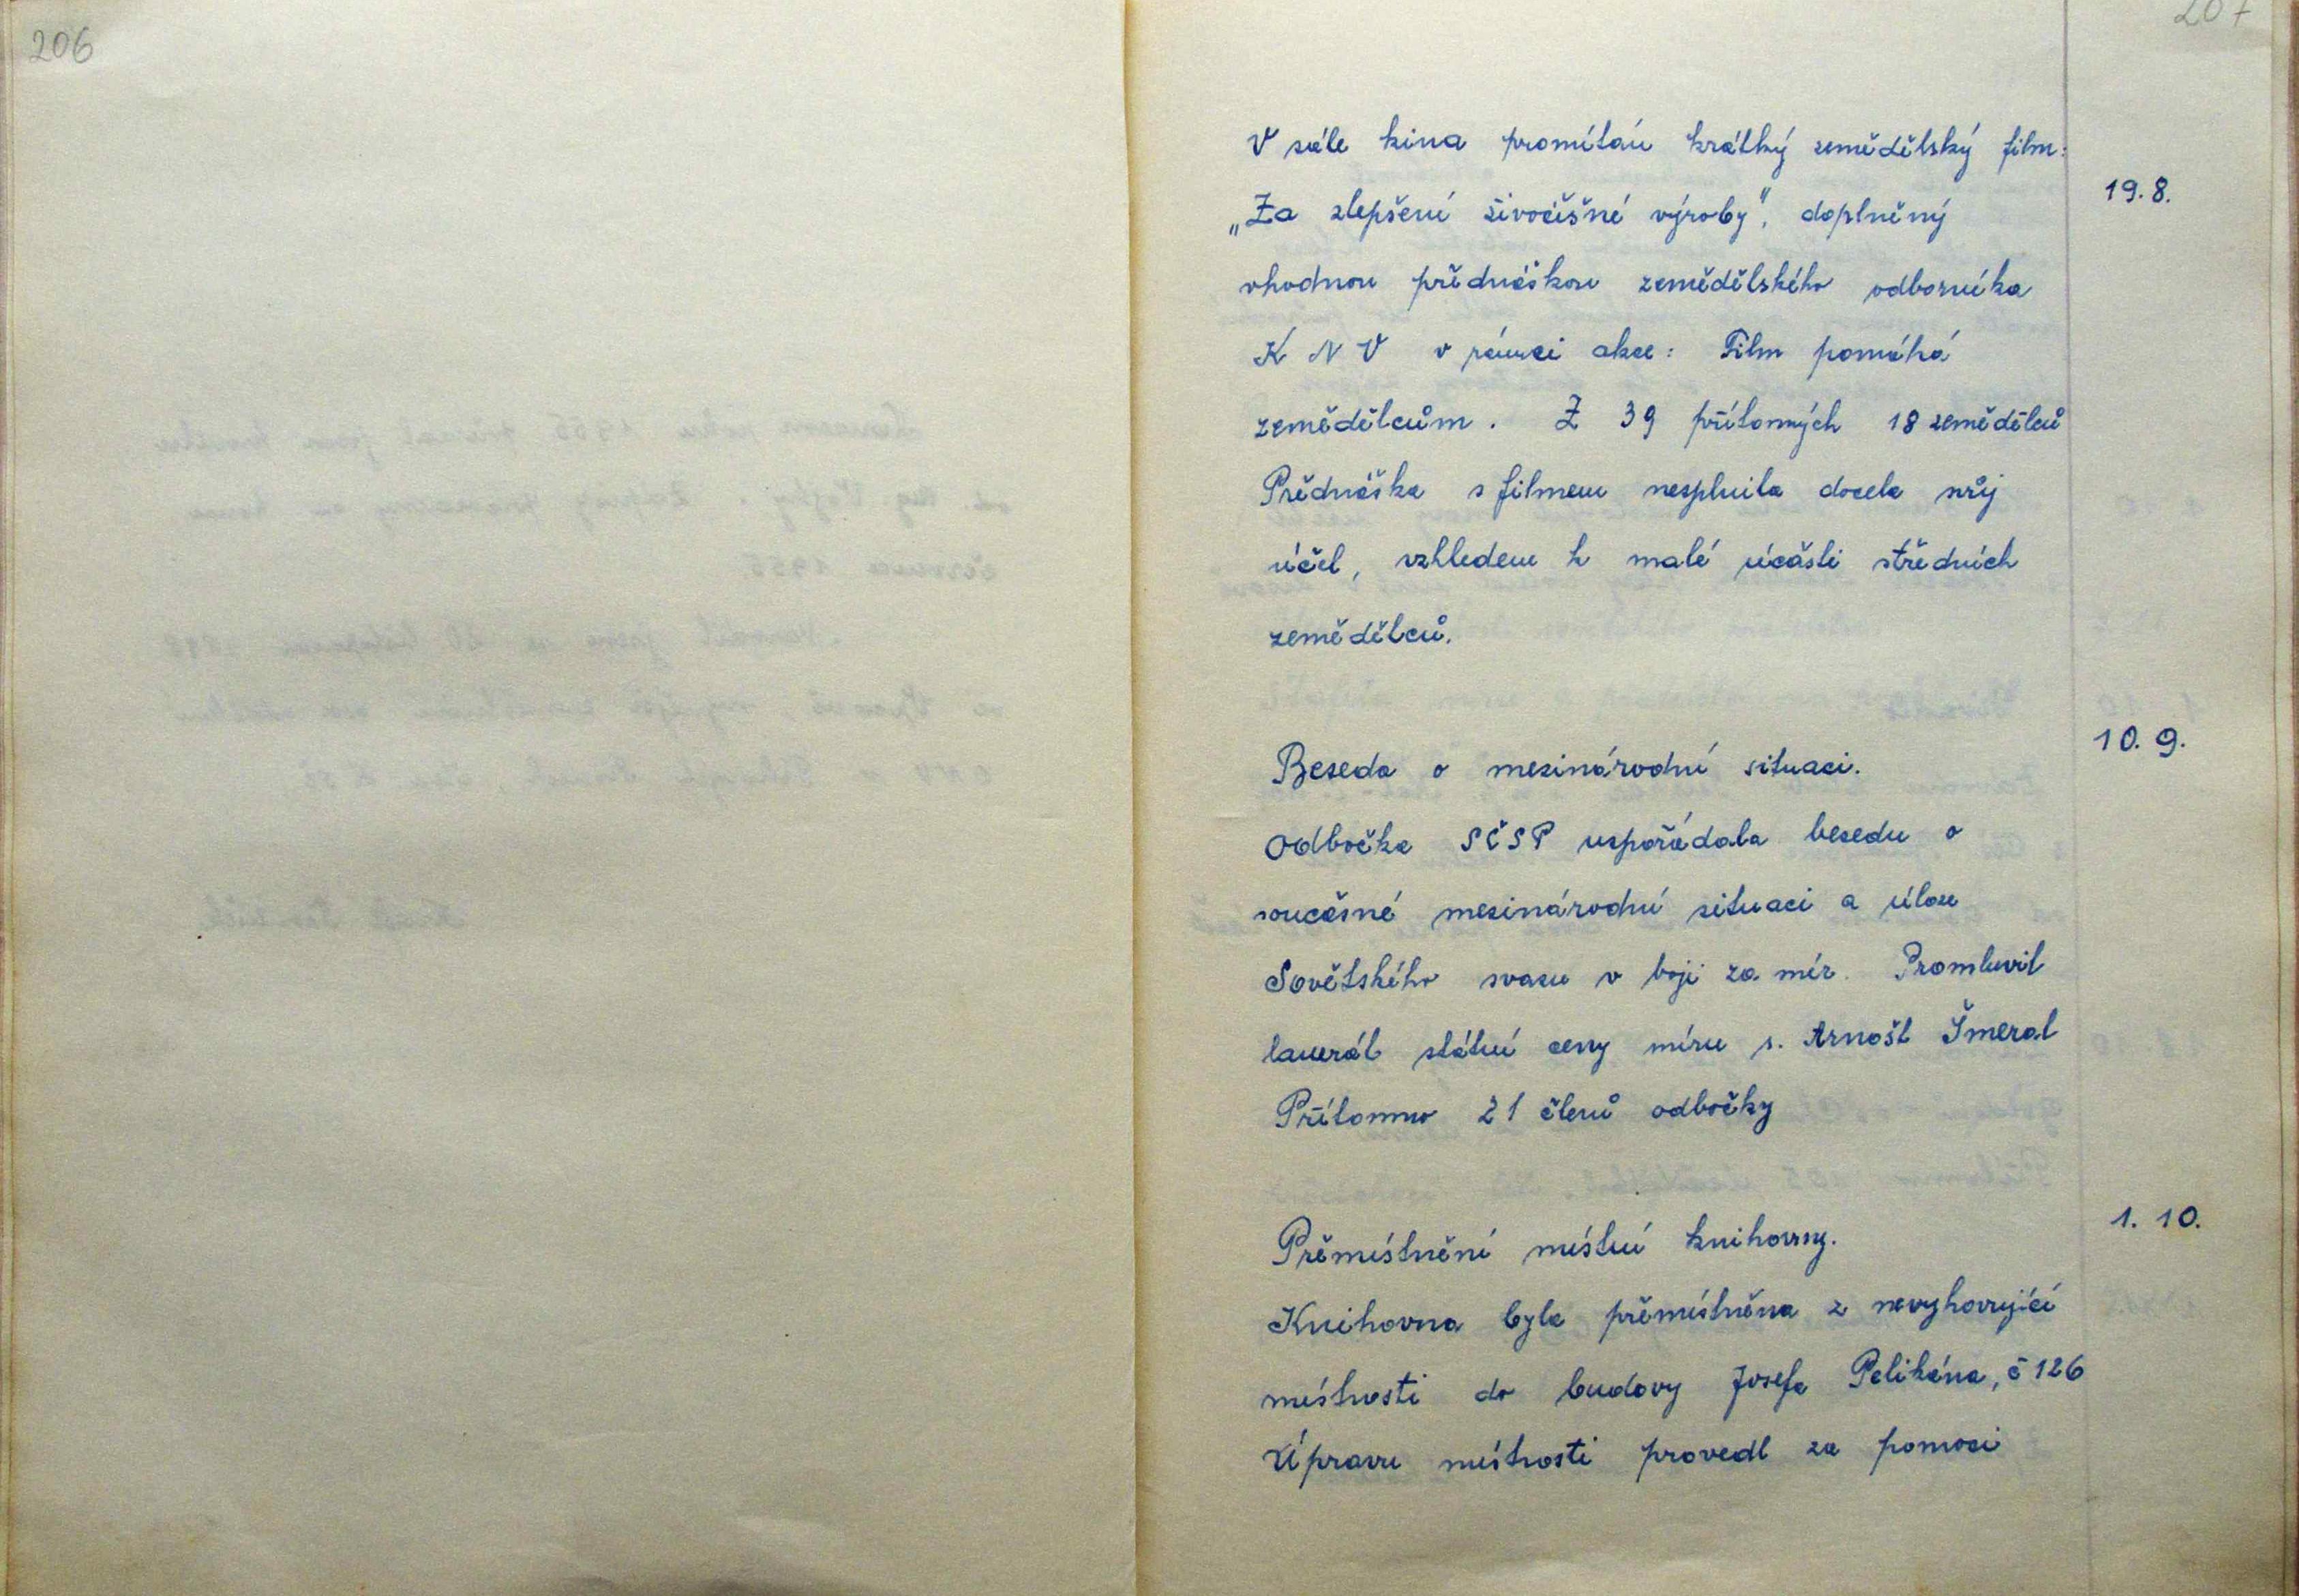 206
207
V sále kina promítán krátký zemědělský film:
19. 8.
„Za zlepšení živočišné výroby", doplněný
vhodnou přednáškou zemědělského odborníka
K N V v rámci akce: Film pomáhá
zemědělcům. Z 39 přítomných 18 zemědělců
Přednáška s filmem nesplnila docela svůj
účel, vzhledem k malé účasti středních
zemědělců.
10. 9.
Beseda o mezinárodní situaci.
Odbočka SČSP uspořádala besedu o
současné mezinárodní situaci a úloze
Sovětského svazu v boji za mír. Promluvil
laureát státní ceny míru s. Arnošt Šmeral
Přítomno 21 členů odbočky
1. 10.
Přemístnění místní knihovny.
Knihovna byla přemístněna z nevyhovující
místnosti do budovy Josefa Pelikána, č 126
Úpravu místnosti provedl za pomoci